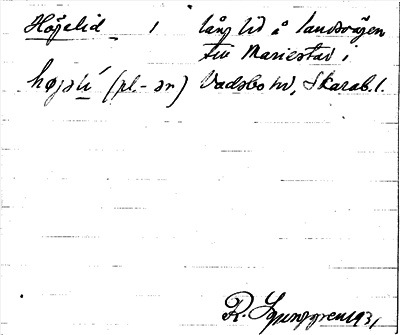 Höjelid 1 lång lid å landsvägen
till Mariestad i
højəlí (pl. -ər) Vadsbo hd, Skarab. l.
R. Ljunggren 1931